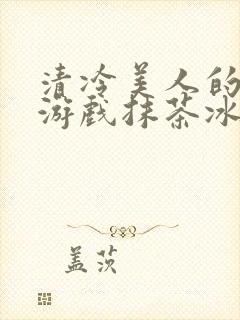 清冷美人的
游戏抹茶冰
盖茨